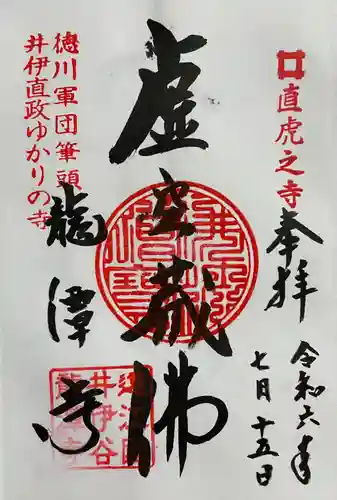 直虎之寺
奉拝
令和六年
七月十五日
虚空蔵佛
徳川軍団筆頭
井伊直政ゆかりの寺
龍潭寺
遠江国
井伊谷
龍潭寺